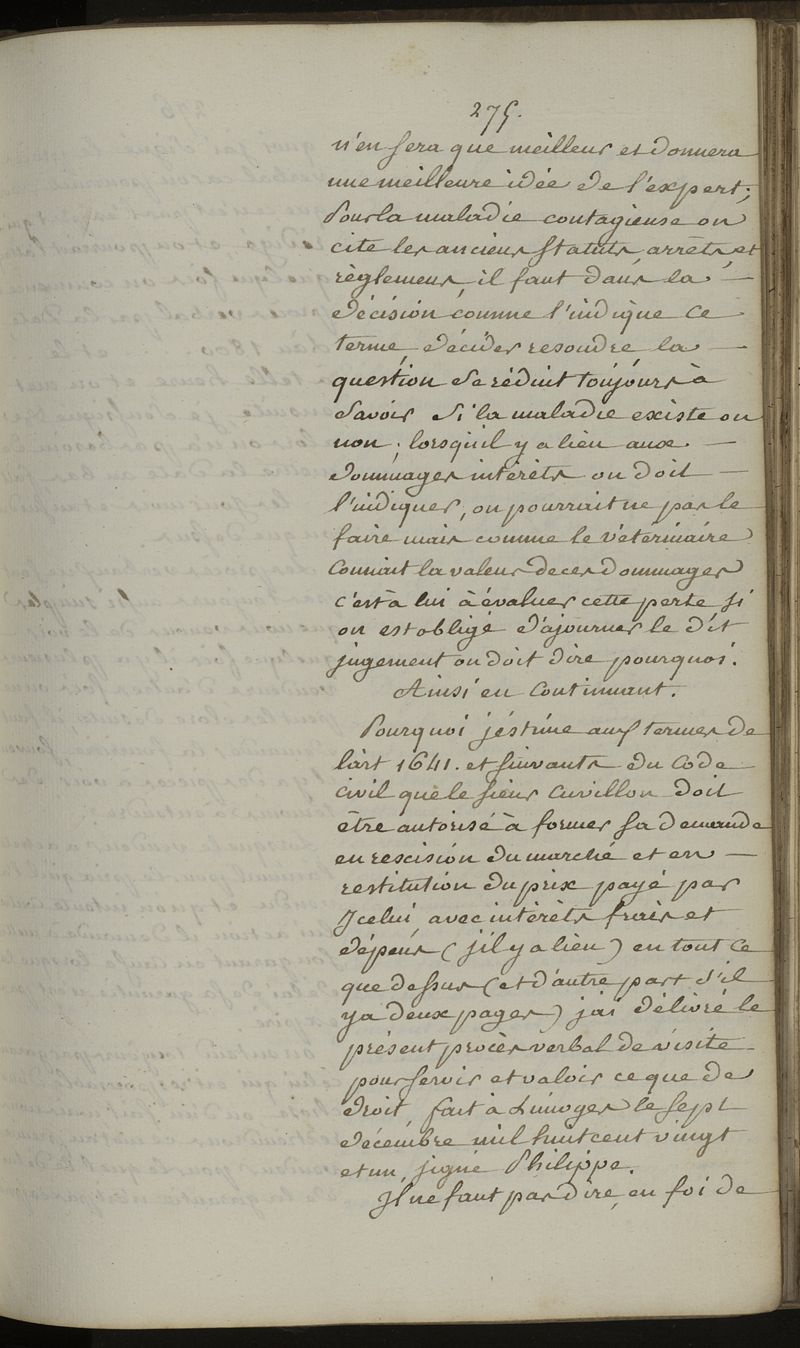 275.
n'en sera que meilleur et donnera
une meilleure idée de l'expert;
Pour la maladie contagieuse on
cite les anciens statuts, arrêts, et
règlemens, il faut dans la —
décision comme l'indique ce
terme, décider resoudre la —
question se réduit toujours à
savoir si la maladie existe ou
non; lorsqu'il y a lieu aux —
dommages intérêts on doit —
l'indiquer, on pourrait ne pas le
faire mais comme le vétérinaire
connait la valeur de ces dommages
c'est à lui à évaluer cette perte si
on est obligé d'ajourner le dit
jugement on doit dire pourquoi.
Ainsi en continuant.
Pourquoi j'éstime aux termes de
l'art 1641. et suivants du Code —
civil que le sieur Cuvillon doit
être autorisé à former sa demande
en rescision du marché et en —
restitution du prix payé par
Icelui avec intérêts frais et
dépens (s'il y a lieu) en tout ce
que dessus (et d'autre part s'il
y a deux pages) j'ai délivré le
présent procès verbal de visite —
pour servir et valoir ce que de
droit, fait à Limoges le sept
décembre mil huit cent vingt
et un, signé Philippe.
Il ne faut pas dire, en foi de